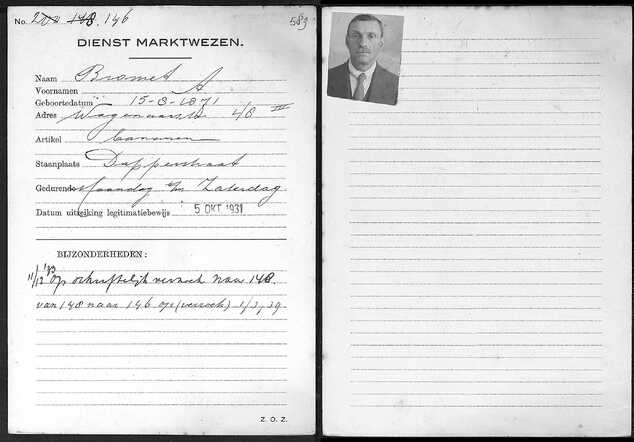 No. 200 148. 146 583
DIENST MARKTWEZEN.
Naam Bromet
Voornamen A
Geboortedatum 15-8-1871
Adres Wagenaarstr 48 III
Artikel bananen
Staanplaats Dapperstraat
Gedurende Maandag t/m Zaterdag
Datum uitreiking legitimatiebewijs 5 OKT 1931
BIJZONDERHEDEN:
11/12 '33 Op schriftelijk verzoek naar 148.
van 148 naar 146 op (verzoek) 1/3, 39
Z. O. Z.